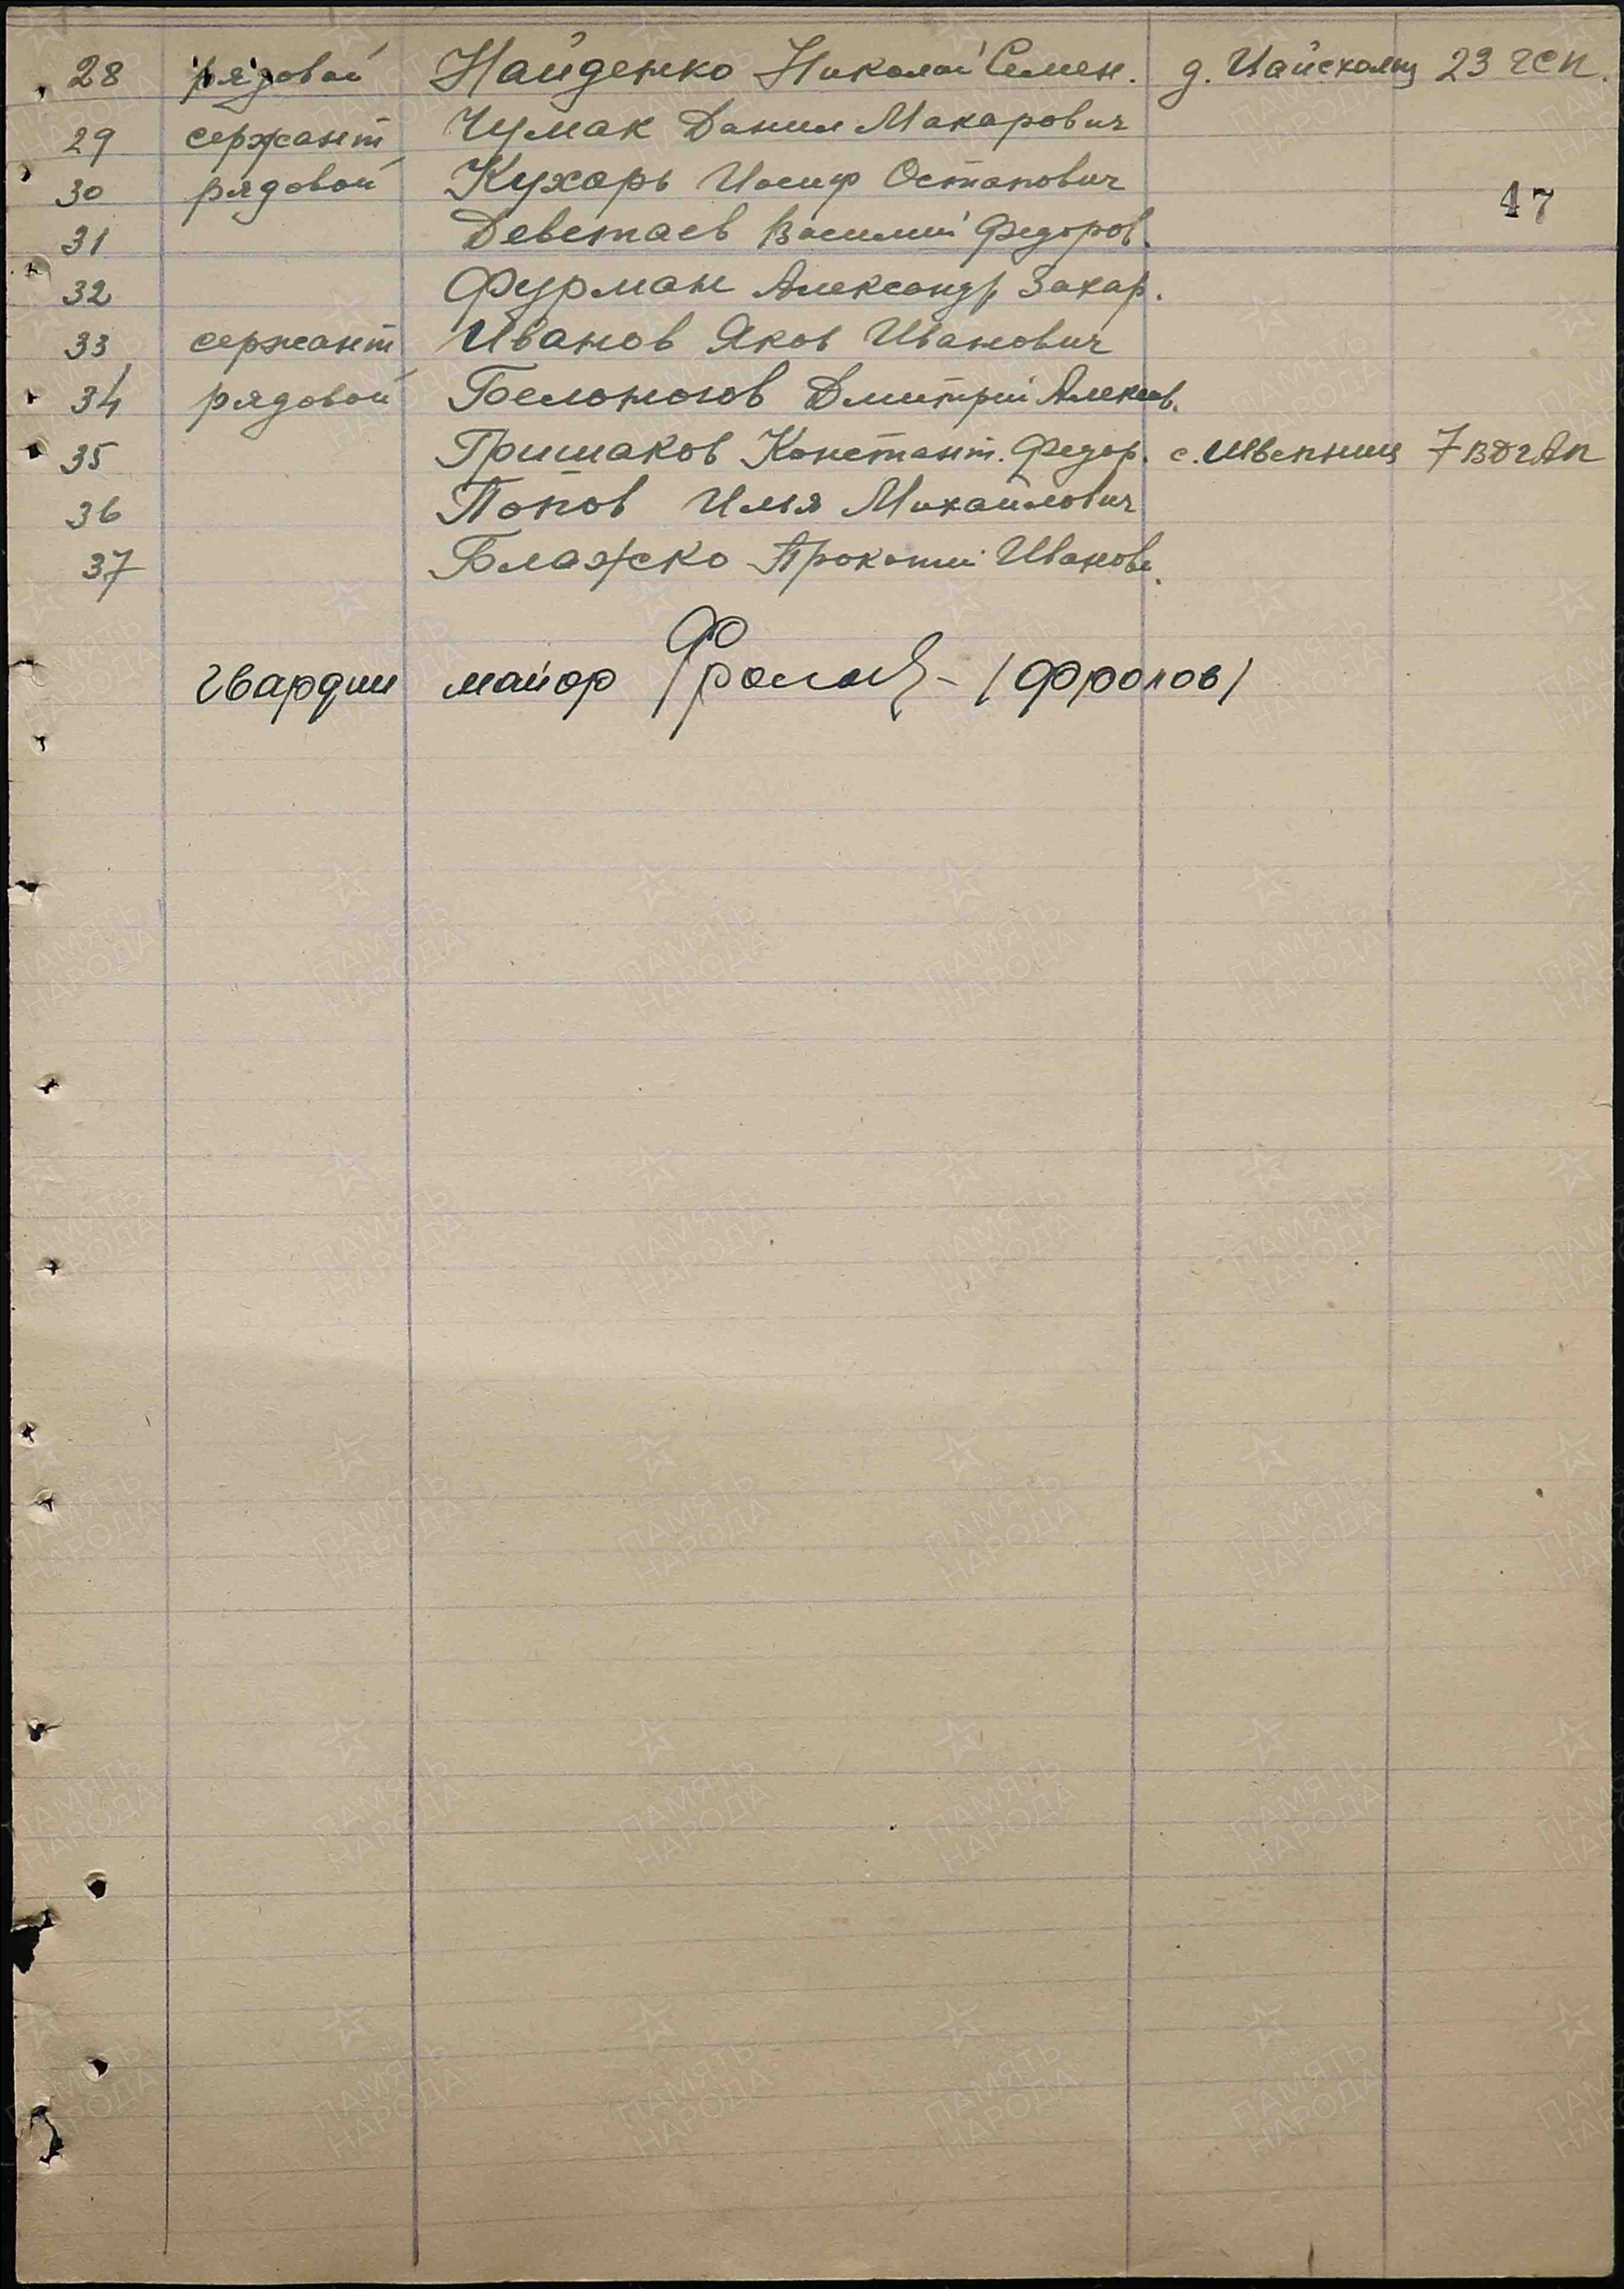 28 рядовой Найденко Николай Семен. д. 23 гсп.
29 сержант Чумак Данил Макарович
30 рядовой Кухарь Иосиф Остапович
47
31 Деветаев Василий Федоров.
32 Фурман Александр Захар.
33 сержант Иванов Яков Иванович
34 рядовой Белоногов Дмитрий Алексеев.
35 Гришаков Константин. Федор. с. 7 ВДгАп
36 Попов Илья Михайлович
37 Блажко Прокопий Иванов.
гвардии майор Фролов - /Фролов/